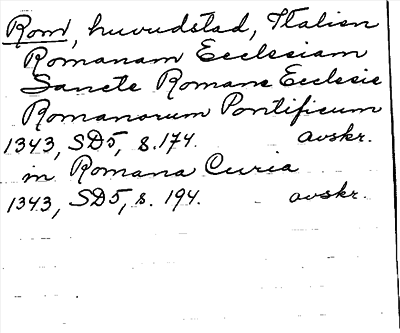 Rom, huvudstad, Italien
Romanam Ecclesiam
Sancte Romane Ecclesie
Romanorum Pontificum
1343, SD5, s. 174. avskr.
in Romana Curia
1343, SD5, s. 194. avskr.